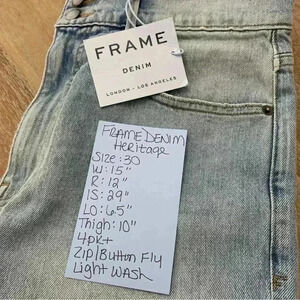 FRAME
DENIM
LONDON - LOS ANGELES
FRAME DENIM
Heritage
Size: 30
W: 15"
R: 12"
IS: 29"
LO: 6.5"
Thigh: 10"
4pk+
Zip/Button Fly
Light WASH